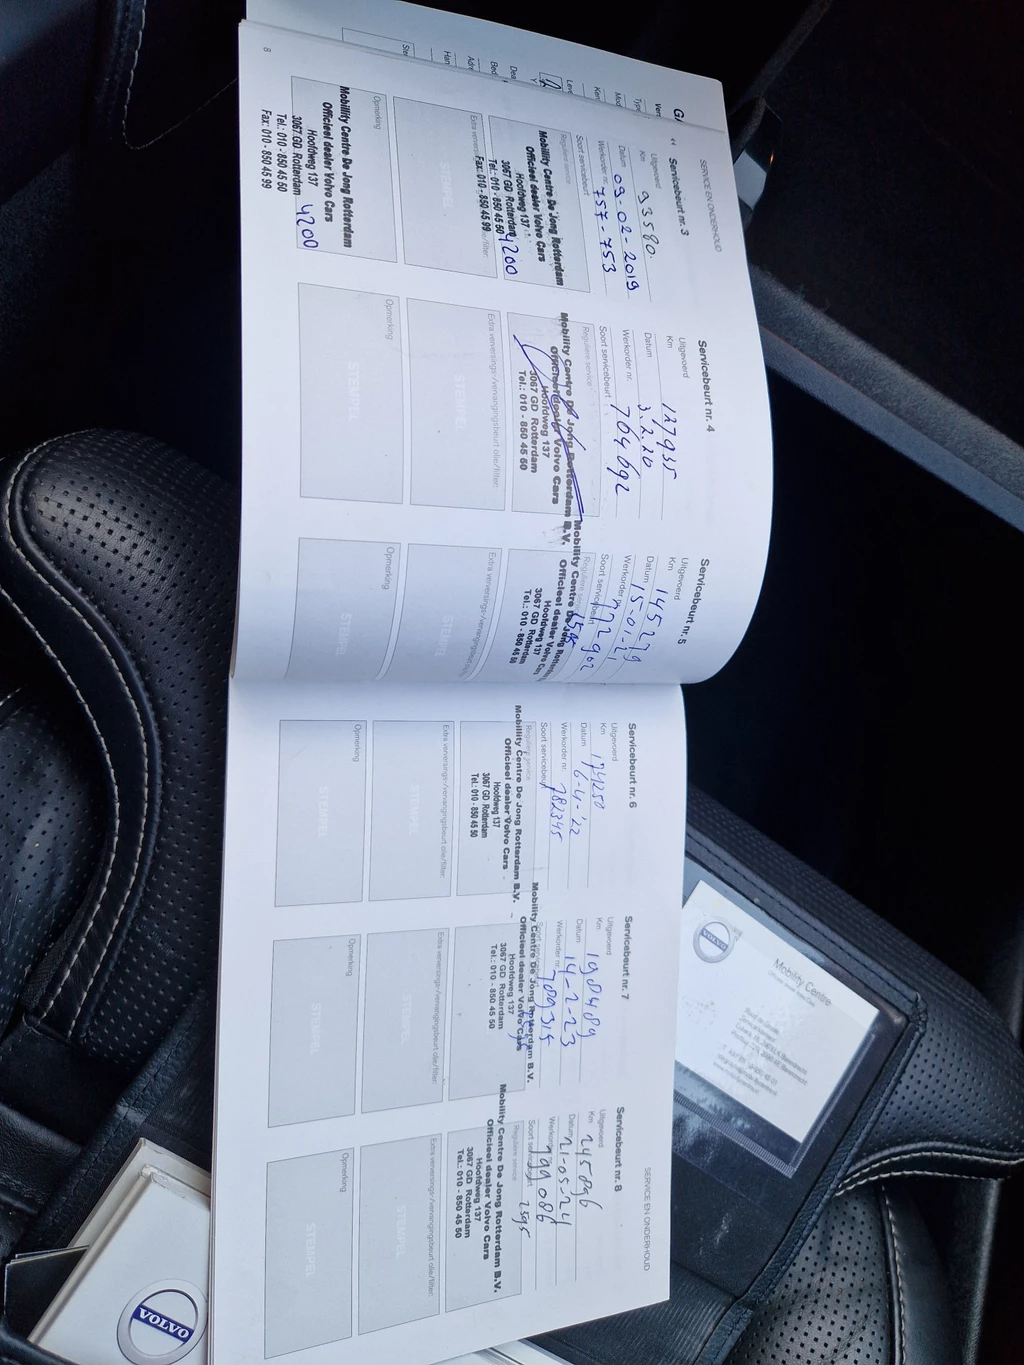 SERVICE EN ONDERHOUD
Servicebeurt nr. 3
Uitgevoerd
Km 93580
Datum 09-02-2019
Werkorder nr. 757-753
Soort servicebeurt
Reguliere service
Mobility Centre De Jong Rotterdam
Officieel dealer Volvo Cars
Hoofdweg 137
3067 GD Rotterdam
Tel.: 010 - 850 45 50
Fax: 010 - 850 45 99
4200
Opmerking
Mobility Centre De Jong Rotterdam
Officieel dealer Volvo Cars
Hoofdweg 137
3067 GD Rotterdam
Tel.: 010 - 850 45 50
Fax: 010 - 850 45 99
4200
8
Servicebeurt nr. 4
Uitgevoerd
Km 127935
Datum 3.2.20
Werkorder nr. 764692
Soort servicebeurt
Reguliere service
Mobility Centre De Jong Rotterdam B.V.
Officieel dealer Volvo Cars
Hoofdweg 137
3067 GD Rotterdam
Tel.: 010 - 850 45 50
Extra verversings-/vervangingsbeurt olie/filter:
STEMPEL
Opmerking
STEMPEL
Servicebeurt nr. 5
Uitgevoerd
Km 145279
Datum 15-01-21
Werkorder nr. 772902
Soort servicebeurt
Mobility Centre De Jong
Officieel dealer Volvo
Hoofdweg 137
3067 GD Rotterdam
Tel.: 010 - 850 45 50
STEMPEL
Opmerking
STEMPEL
Servicebeurt nr. 6
Uitgevoerd
Km 174250
Datum 6-4-'22
Werkorder nr. 782345
Soort servicebeurt
Reguliere service
Mobility Centre De Jong Rotterdam B.V.
Officieel dealer Volvo Cars
Hoofdweg 137
3067 GD Rotterdam
Tel.: 010 - 850 45 50
Extra verversings-/vervangingsbeurt olie/filter:
STEMPEL
Opmerking
STEMPEL
Servicebeurt nr. 7
Uitgevoerd
Km 198489
Datum 14-2-23
Werkorder nr. 789315
Mobility Centre De Jong Rotterdam B.V.
Officieel dealer Volvo Cars
Hoofdweg 137
3067 GD Rotterdam
Tel.: 010 - 850 45 50
Extra verversings-/vervangingsbeurt olie/filter:
STEMPEL
Opmerking
STEMPEL
SERVICE EN ONDERHOUD
Servicebeurt nr. 8
Uitgevoerd
Km 245896
Datum 21-05-'24
Werkorder 799086
Soort
Reguliere service
Mobility Centre De Jong Rotterdam B.V.
Officieel dealer Volvo Cars
Hoofdweg 137
3067 GD Rotterdam
Tel.: 010 - 850 45 50
Extra verversings-/vervangingsbeurt olie/filter:
STEMPEL
Opmerking
STEMPEL
VOLVO
Mobility Centre
VOLVO